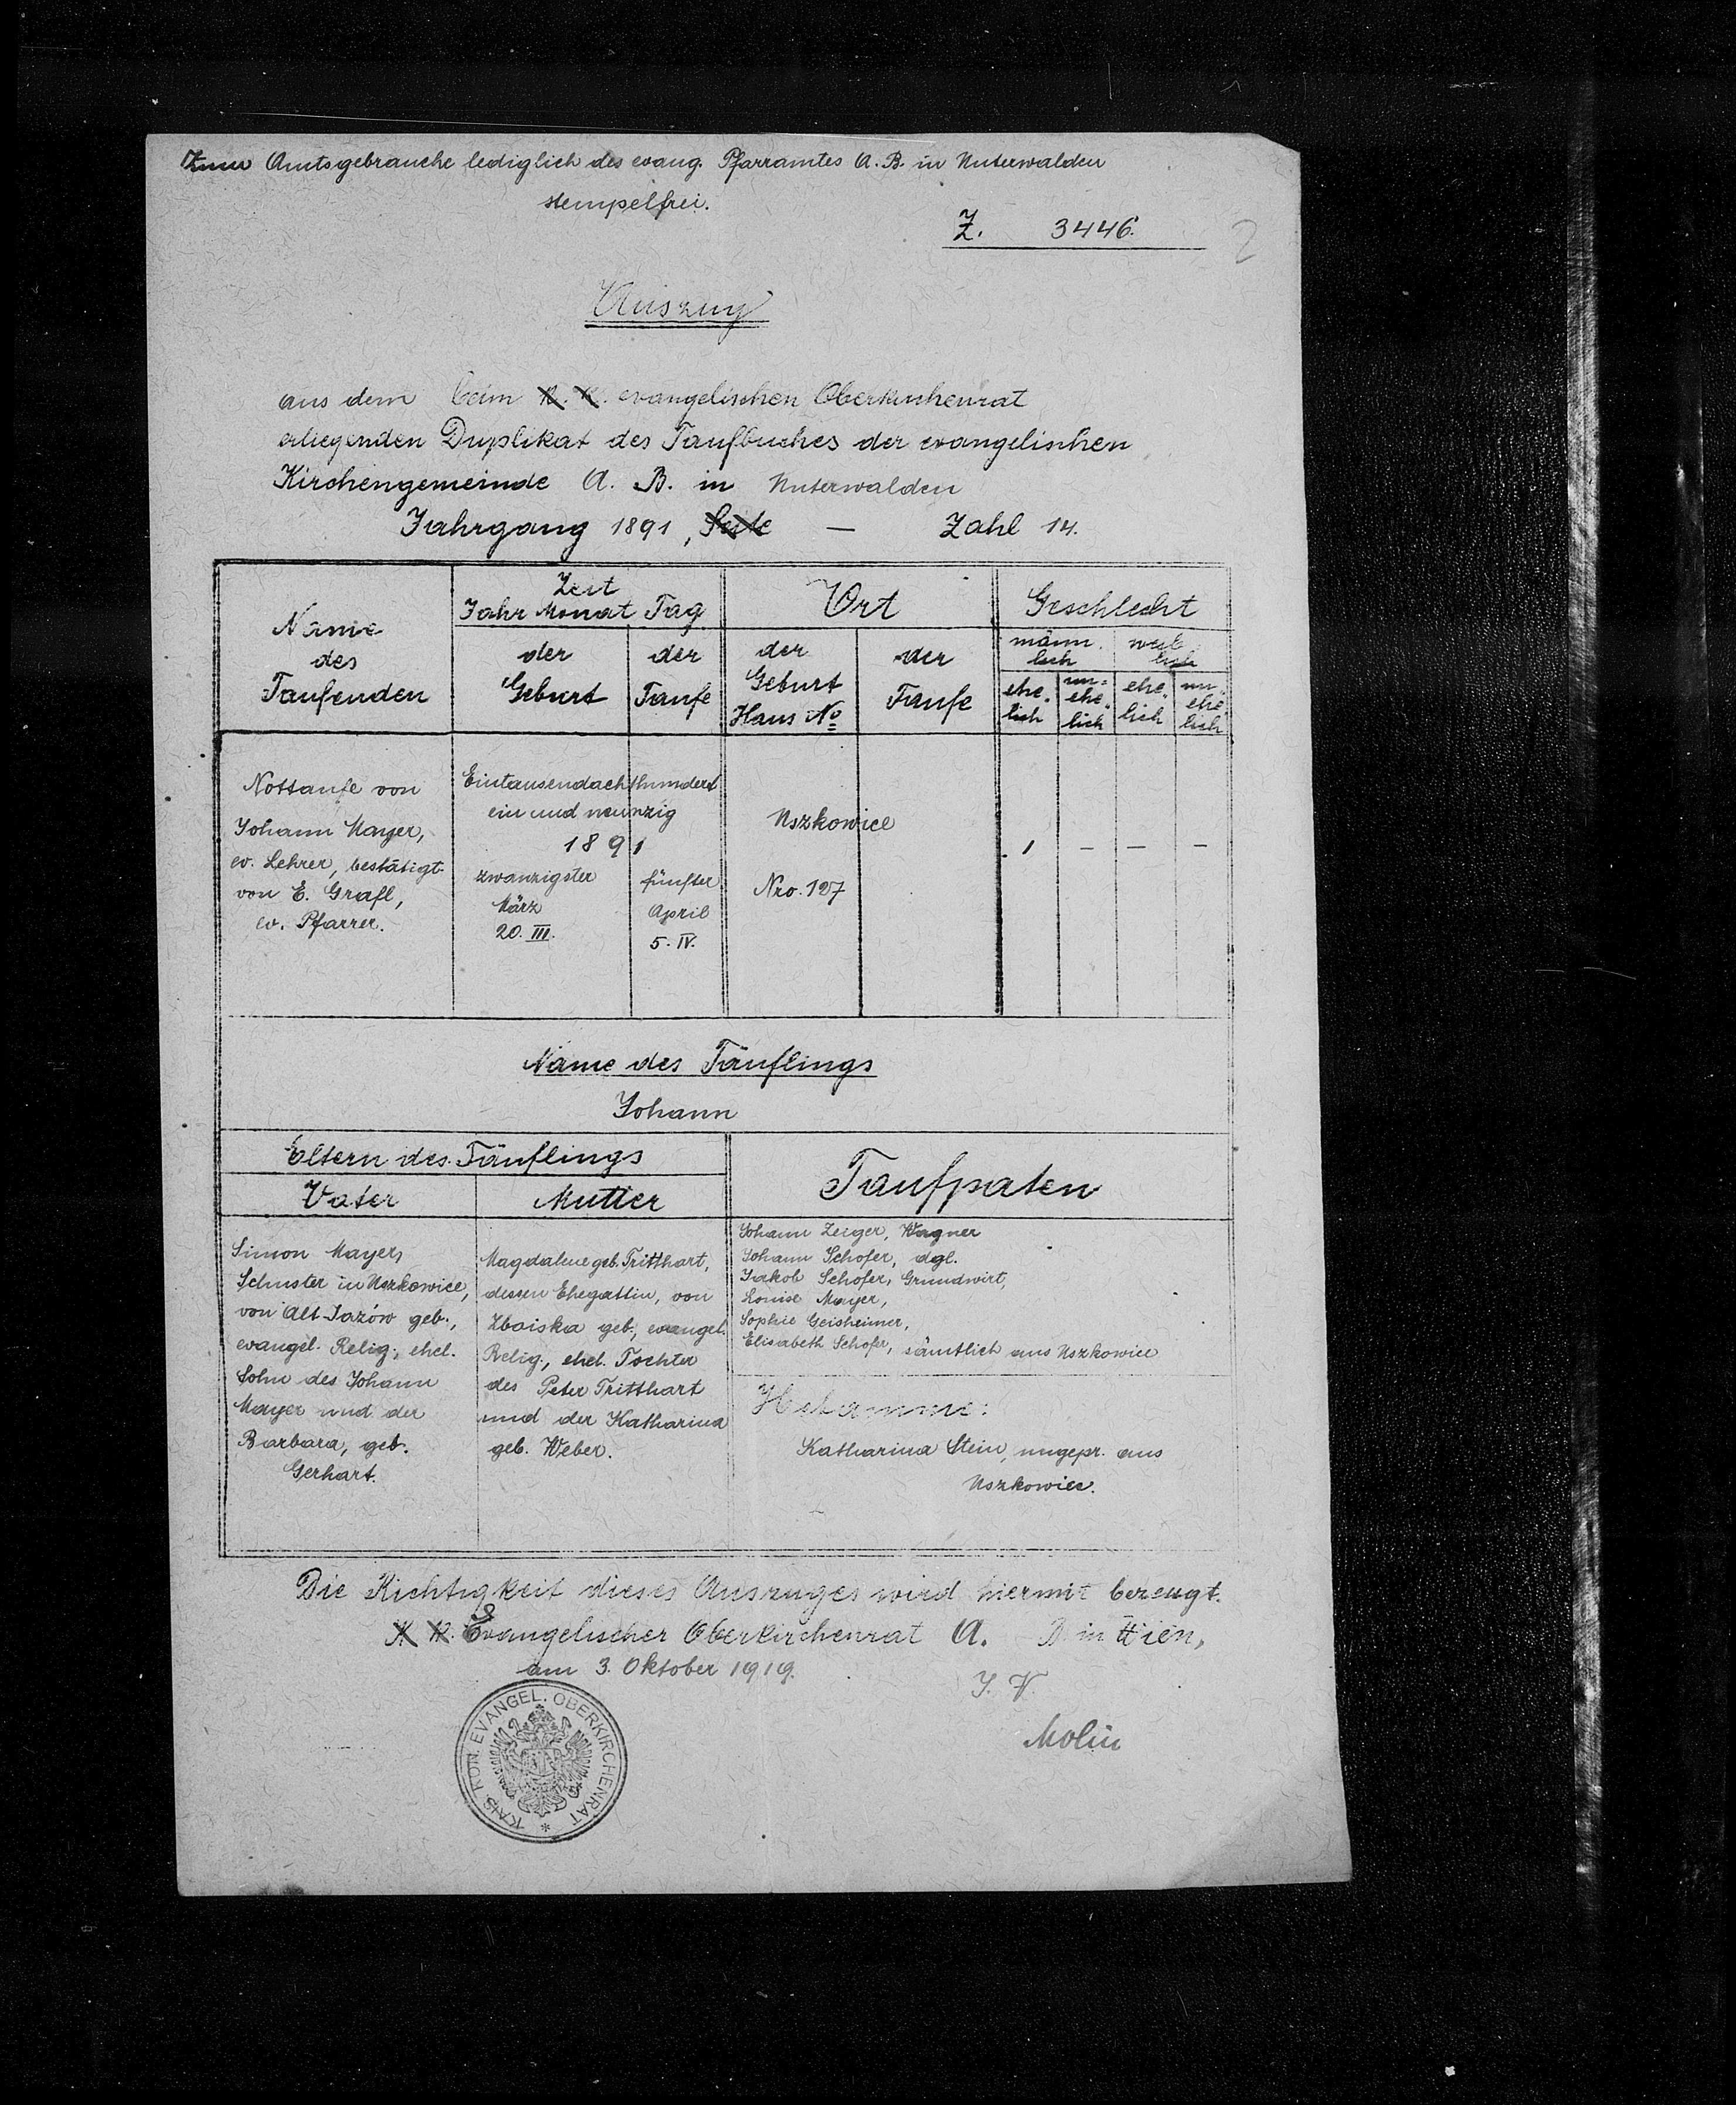 Zum Amtsgebrauche lediglich des evang. Pfarramtes A. B. in Unterwalden
stempelfrei.
Z. 3446.
2
Auszug
aus dem beim K. K. evangelischen Oberkirchenrat
erliegenden Duplikat des Taufbuches der evangelischen
Kirchengemeinde A. B. in Unterwalden
Jahrgang 1891, Seite — Zahl 14.
Name
des
Taufenden
Zeit
Jahr Monat Tag
der
Geburt
der
Taufe
Ort
der
Geburt
Haus No
der
Taufe
Geschlecht
männ.
lich
weib
lich
ehe.
lich
un=
ehe.
lich
ehe.
lich
un.
ehe
lich
Nottaufe von
Johann Mayer,
ev. Lehrer, bestätigt
von E. Grafl,
ev. Pfarrer.
Eintausendachthundert
ein und neunzig
1891
zwanzigster
März
20. III.
fünfter
April
5. IV.
Uszkowice
Nro. 127
1 — — —
Name des Täuflings
Johann
Eltern des Täuflings
Vater
Mutter
Taufpaten
Simon Mayer,
Schuster in Uszkowice,
von Alt-Jazów geb.,
evangel. Relig., ehel.
Sohn des Johann
Mayer und der
Barbara, geb.
Gerhart.
Magdalene geb. Tritthart,
dessen Ehegattin, von
Zboiska geb., evangel.
Relig., ehel. Tochter
des Peter Tritthart
und der Katharina
geb. Weber.
Johann Zeiger, Wagner
Johann Schofer, dgl.
Jakob Schofer, Grundwirt,
Louise Mayer,
Sophie Geisheimer,
Elisabeth Schofer, sämtlich aus Uszkowice
Hebamme:
Katharina Stein, ungepr. aus
Uszkowice.
Die Richtigkeit dieses Auszuges wird hiermit bezeugt.
K. K. Evangelischer Oberkirchenrat A. B. in Wien,
am 3. Oktober 1919.
I. V.
Molin
KAIS. KÖN. EVANGEL. OBERKIRCHENRAT *